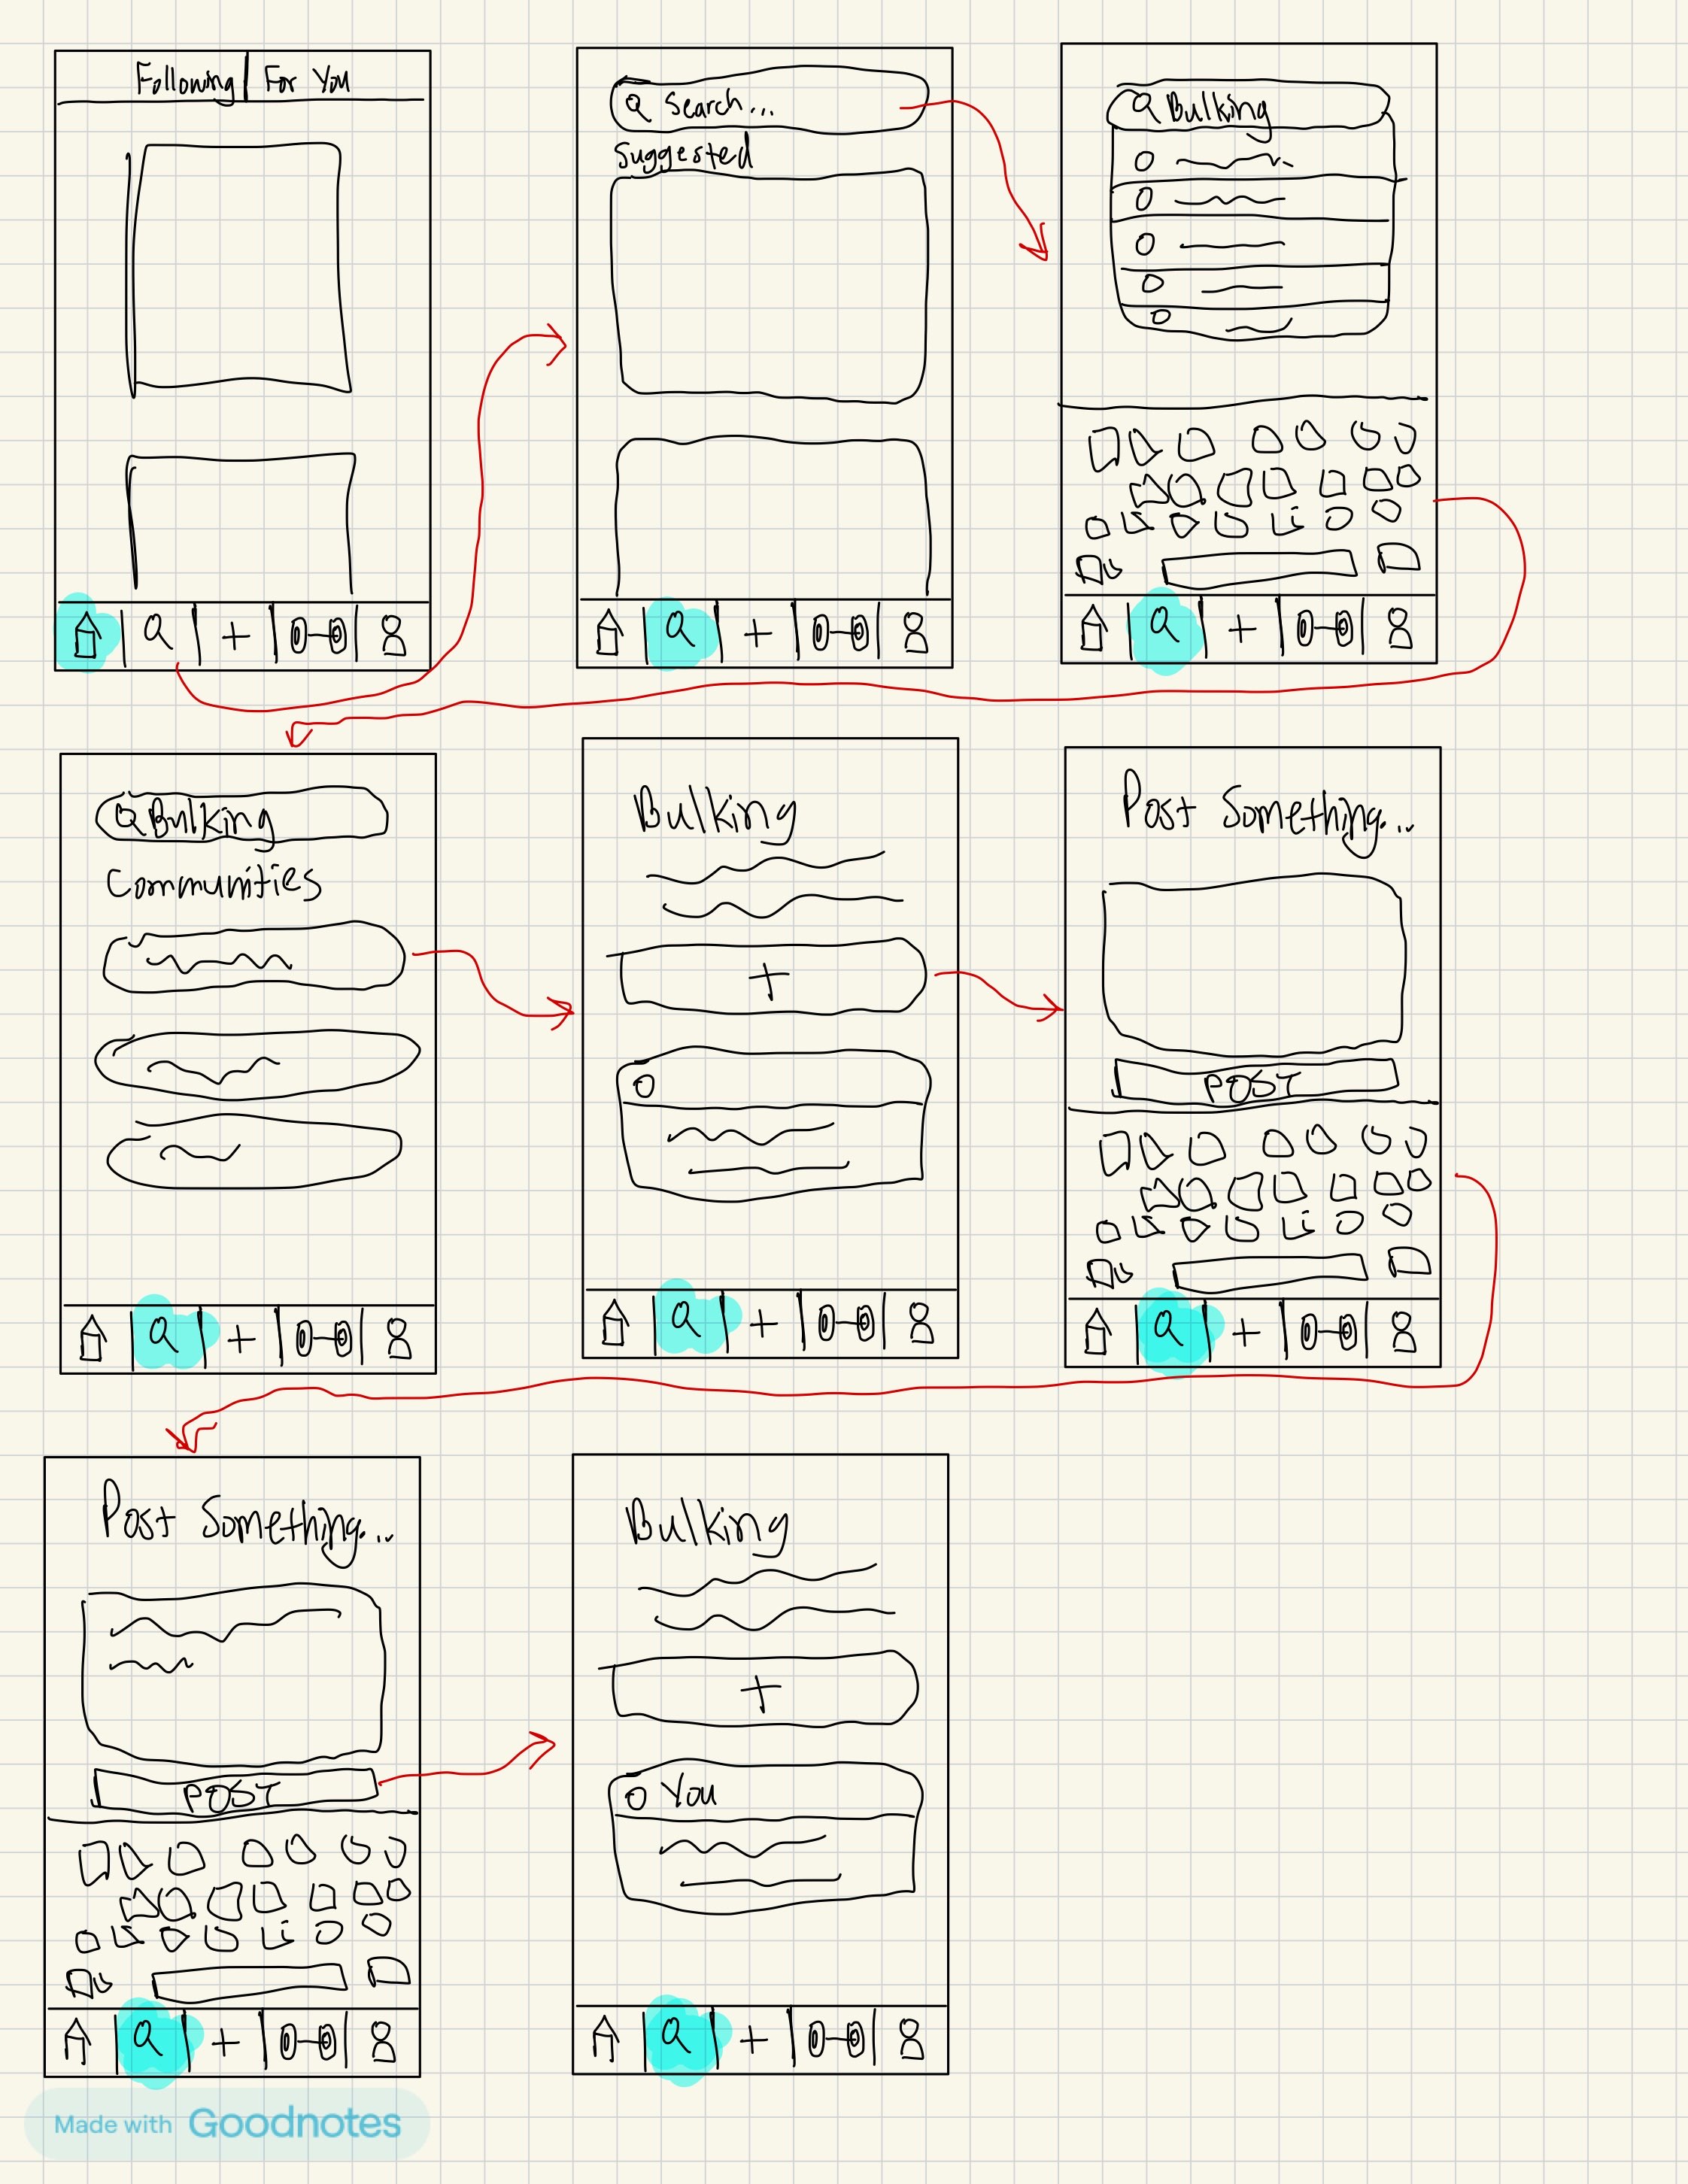 Following | For You
Search...
Suggested
Bulking
Bulking
Communities
Bulking
Post Something...
POST
Post Something...
POST
Bulking
You
Made with Goodnotes